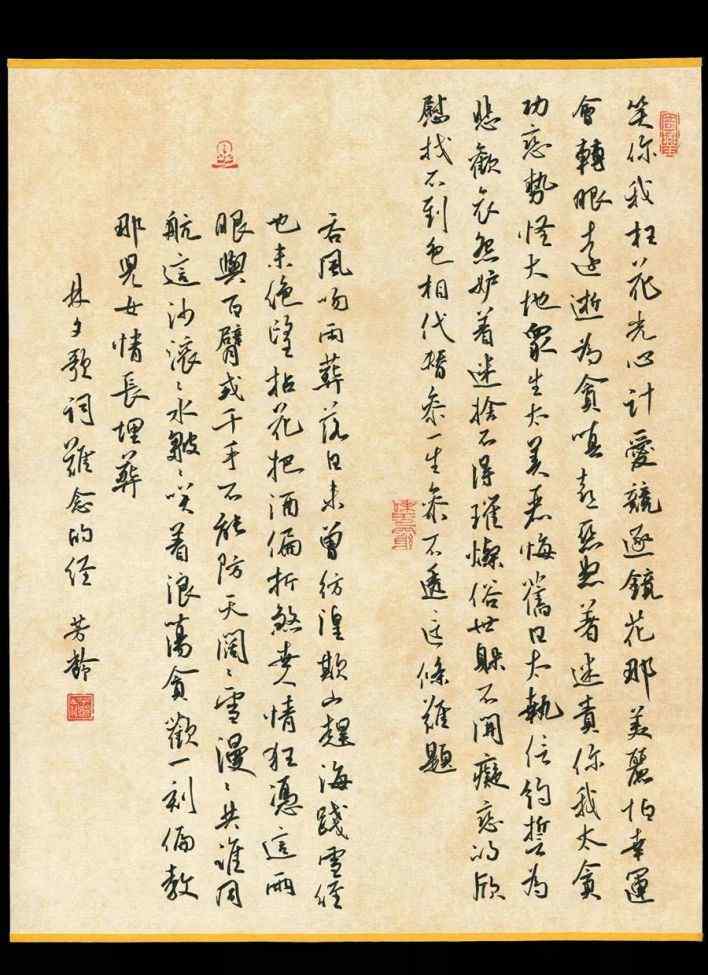 笑你我枉花光心計愛競逐鏡花那美麗怕幸運
會轉眼遠逝為貪嗔喜惡怒着迷責你我太貪
功戀勢怪大地眾生太美麗悔舊日太執信約誓為
悲歡哀怨妒着迷捨不得璀燦俗世躲不開癡戀的欣
慰找不到色相代替參一生參不透這條難題
吞風吻雨葬落日未曾彷徨欺山趕海踐雪徑
也未絕望拈花把酒偏折煞世人情狂憑這兩
眼與百臂或千手不能防天闊〻雪漫〻共誰同
航這沙滾〻水皺〻笑着浪蕩貪歡一刻偏教
那兒女情長埋葬
林夕歌詞難念的經 芳齡